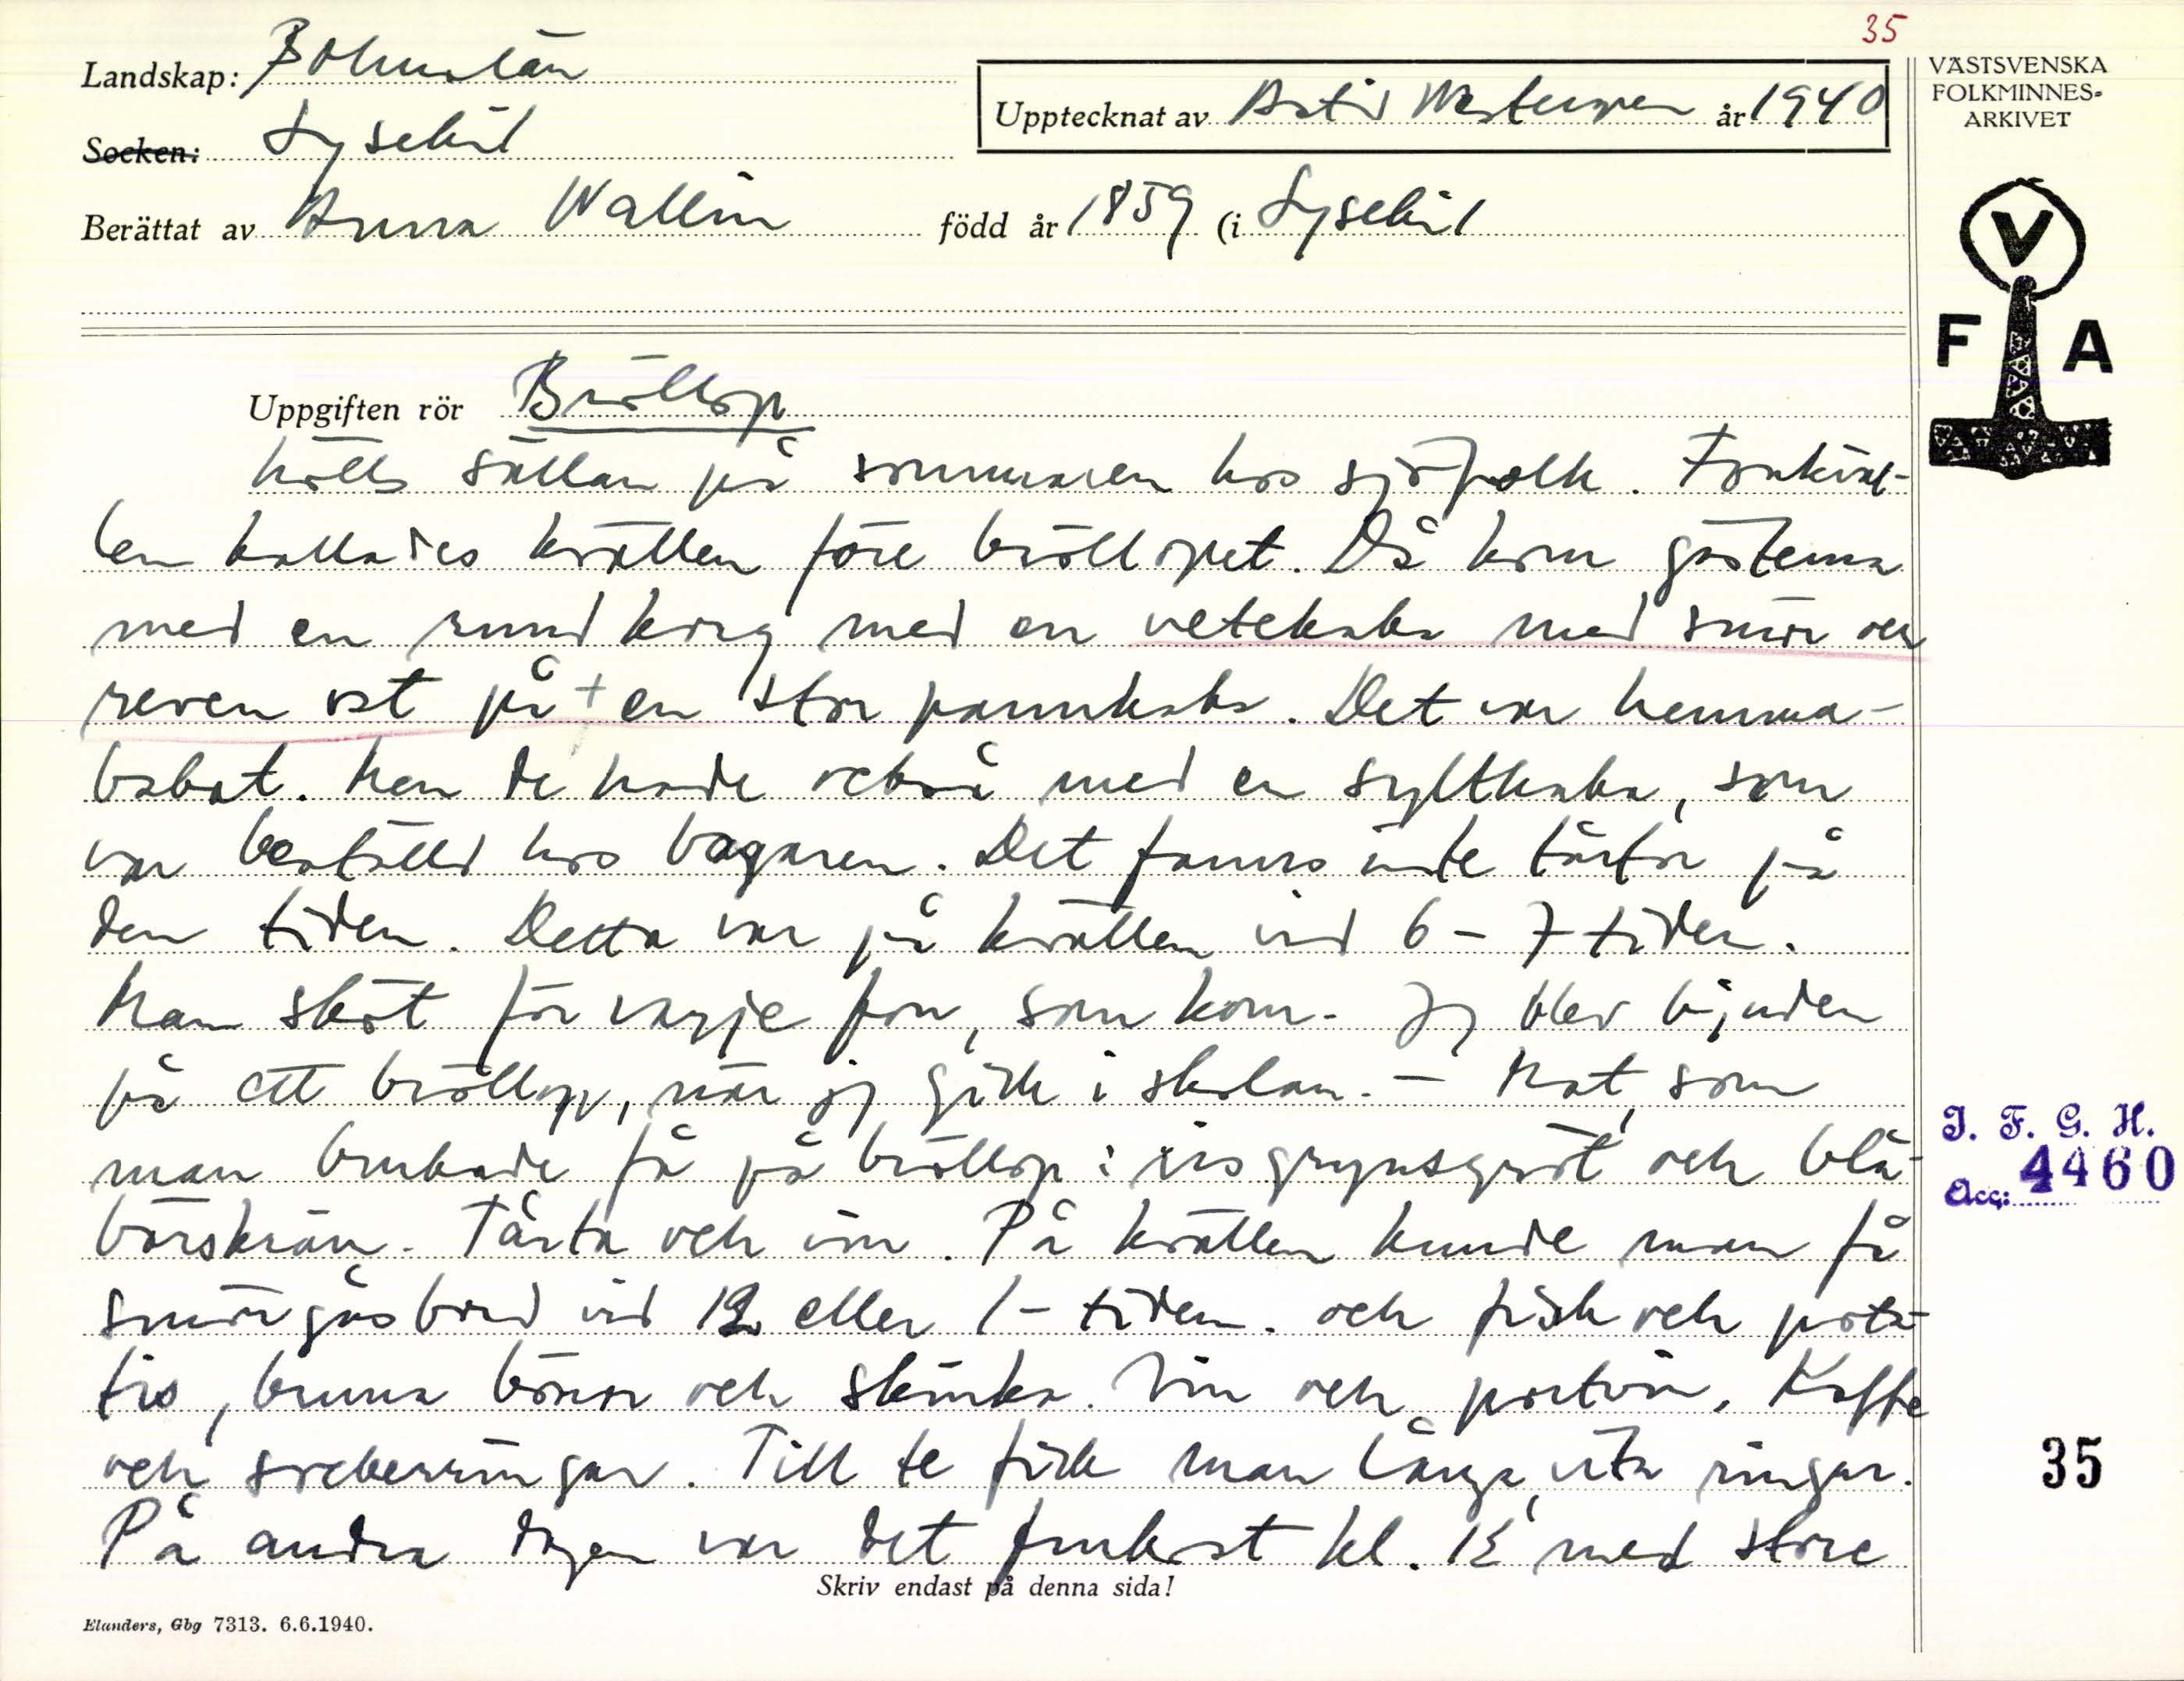 35
Landskap: Bohuslän
Upptecknat av Astrid Westerman år 1940
VÄSTSVENSKA
FOLKMINNES-
ARKIVET
Socken: Lysekil
Berättat av Anna Wallin född år 1859 (i Lysekil
V
F A
Uppgiften rör Bröllop
hölls sällan på sommaren hos sjöfolk. Fönkväl-
len kallades kvällen före bröllopet. Då kom gästerna
med en rund korg med en vetekaka med smör och
reven ost på + en stor pannkaka. Det var hemma-
bakat. Men de hade också med en syltkaka, som
var beställd hos bagaren. Det fanns inte tårtor på
den tiden. Detta var på kvällen vid 6-7 tiden.
Man sköt för varje fru, som kom. Jg blev bjuden
på ett bröllop, när jg gick i skolan. - Mat, som
man brukade få på bröllop: risgrynsgröt och blå-
bärskräm. Tårta och vin. På kvällen kunde man få
smörgåsbord vid 12 eller 1-tiden. och fisk och pota-
tis, bruna bönor och skinka. Vin och portvin. Kaffe
och sockerringar. Till te fick man långa, vita ringar.
På andra dagen var det frukost kl. 12 med stora
Skriv endast på denna sida!
Elanders, Gbg 7313. 6.6.1940.
I. F. G. H.
Acc: 4460
35